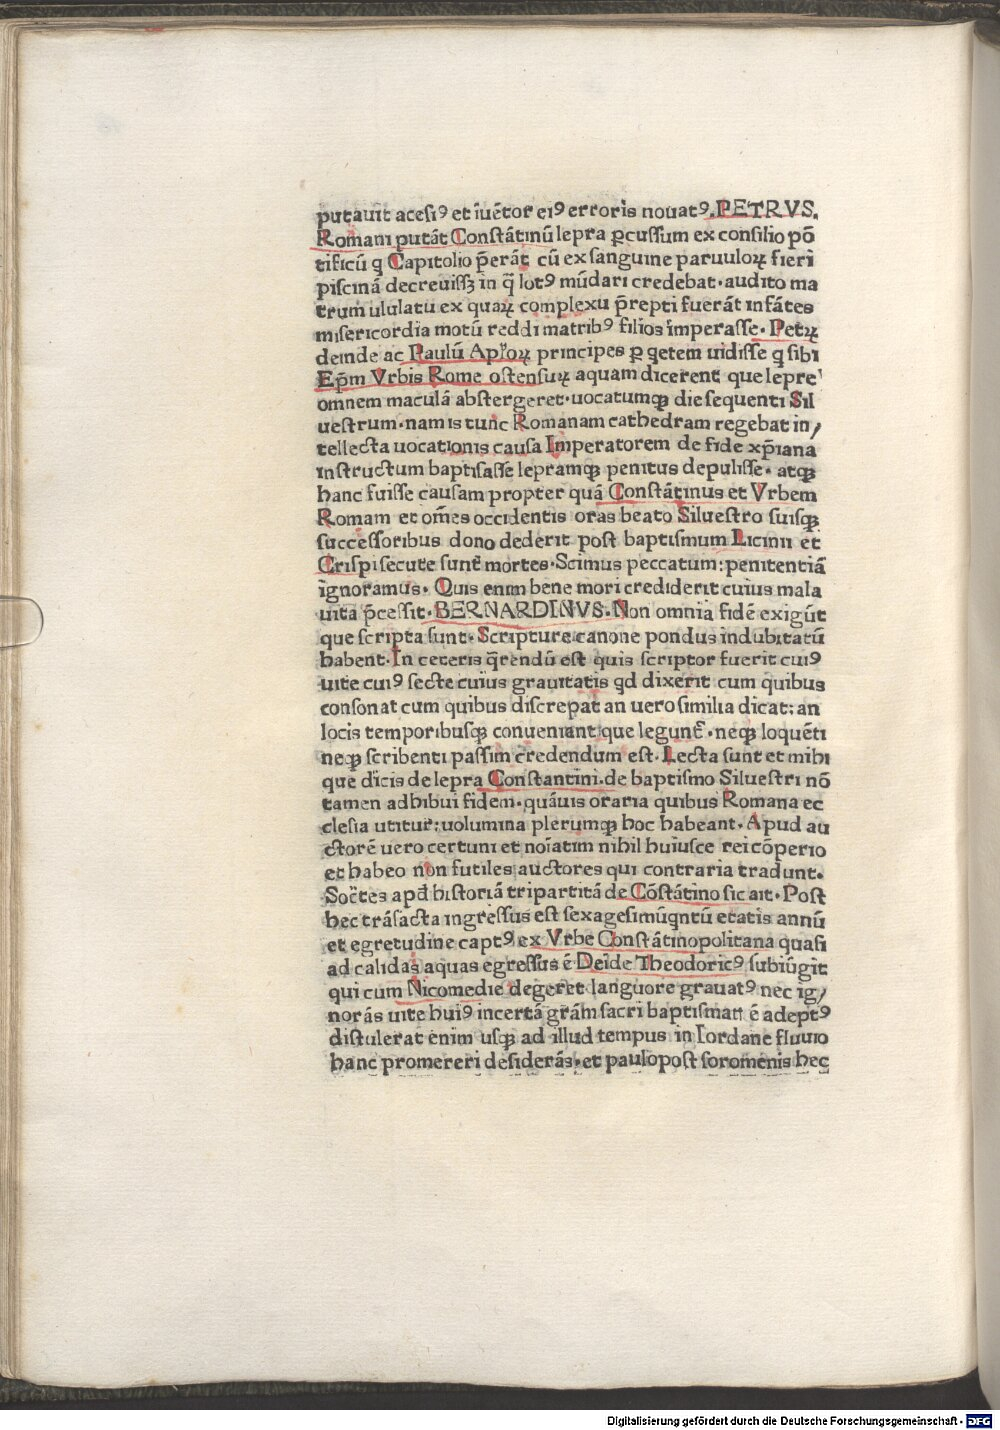 putauit acesiꝰ et iuētor eiꝰ erroris nouatꝰ. PETRVS.
Romani putāt Constātinū lepra ꝑcussum ex consilio pō
tificū q Capitolio p̄erāt cū ex sanguine paruuloꝝ fieri
piscinā decreuissꝫ in q̄ lotꝰ mūdari credebat. audito ma
trum ululatu ex quaꝝ complexu p̄repti fuerāt infātes
misericordia motū reddi matribꝰ filios imperasse. Petꝝ
deinde ac Paulū Aploꝝ principes ꝑ qetem uidisse q sibi
Ep̄m Vrbis Rome ostensuꝝ aquam dicerent que lepre
omnem maculā abstergeret. uocatumqꝫ die sequenti Sil
uestrum. nam is tunc Romanam cathedram regebat in/
tellecta uocationis causa Imperatorem de fide xp̄iana
instructum baptisasse lepramqꝫ penitus depulisse. atqꝫ
hanc fuisse causam propter quā Constātinus et Vrbem
Romam et om̄es occidentis oras beato Siluestro suisqꝫ
successoribus dono dederit post baptismum Licinii et
Crispi secute sunt mortes. Scimus peccatum: penitentiā
ignoramus. Quis enim bene mori crediderit cuius mala
uita p̄cessit. BERNARDINVS. Non omnia fidē exigūt
que scripta sunt. Scripture canone pondus indubitatū
habent. In ceteris q̄rendū est quis scriptor fuerit cuiꝰ
uite cuiꝰ secte cuius grauitatis qd dixerit cum quibus
consonat cum quibus discrepat an uero similia dicat: an
locis temporibusqꝫ conueniant que legunt̄. neqꝫ loquēti
neqꝫ scribenti passim credendum est. Lecta sunt et mihi
que dicis de lepra Constantini. de baptismo Siluestri nō
tamen adhibui fidem. quāuis oraria quibus Romana ec
clesia utitur: uolumina plerumqꝫ hoc habeant. Apud au
ctorē uero certum et noīatim nihil huiusce rei cōperio
et habeo non futiles auctores qui contraria tradunt.
Soc̄tes apd̄ historiā tripartitā de Cōstātino sic ait. Post
hec trāsacta ingressus est sexagesimūqntū etatis annū
et egretudine captꝰ ex Vrbe Constātinopolitana quasi
ad calidas aquas egressus ē Deīde Theodoricꝰ subiūgit
qui cum Nicomedie degeret languore grauatꝰ nec ig/
norās uite huiꝰ incertā grām sacri baptismatī ē adeptꝰ
distulerat enim usqꝫ ad illud tempus in Iordane fluuio
hanc promereri desiderās. et paulo post soromenis hec
Digitalisierung gefördert durch die Deutsche Forschungsgemeinschaft - DFG